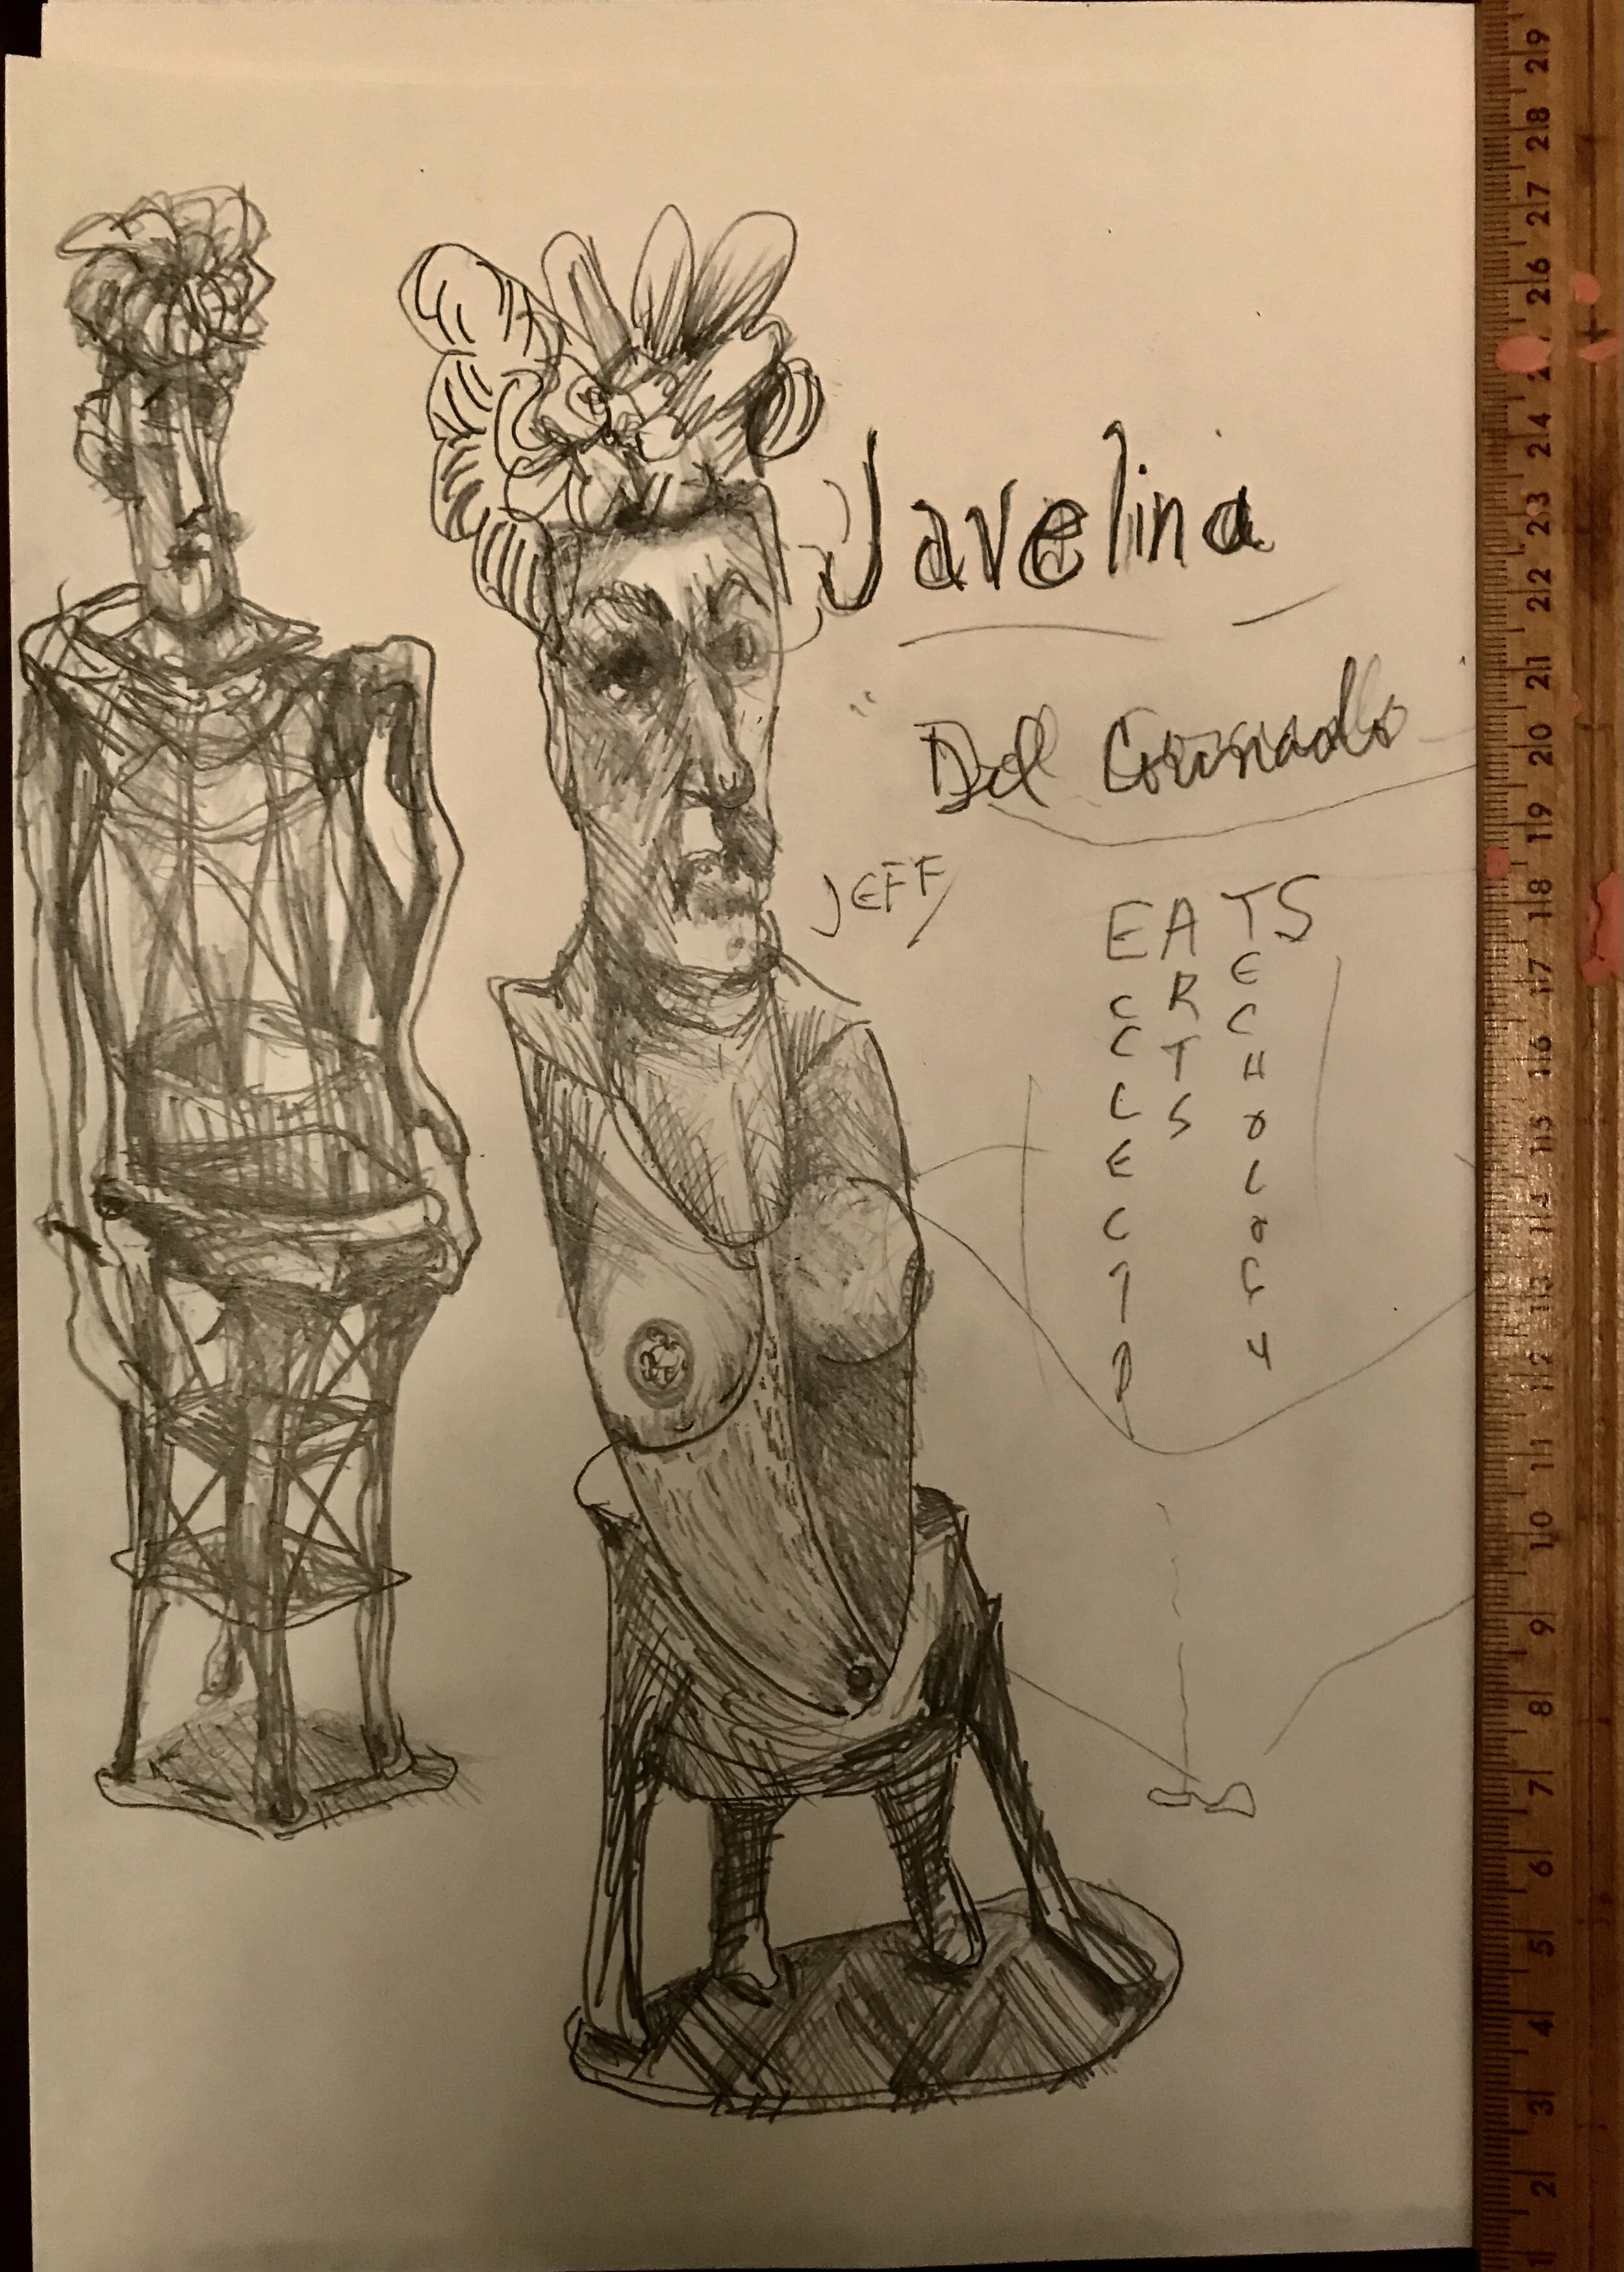 Javelina
Del Coronado
JEFF
EATS
E
C R C
C T H
L S O
E L
C O
T G
I Y
C
29
28
27
26
24
23
22
21
20
19
18
17
16
15
14
13
12
11
10
9
8
7
6
5
4
3
2
1